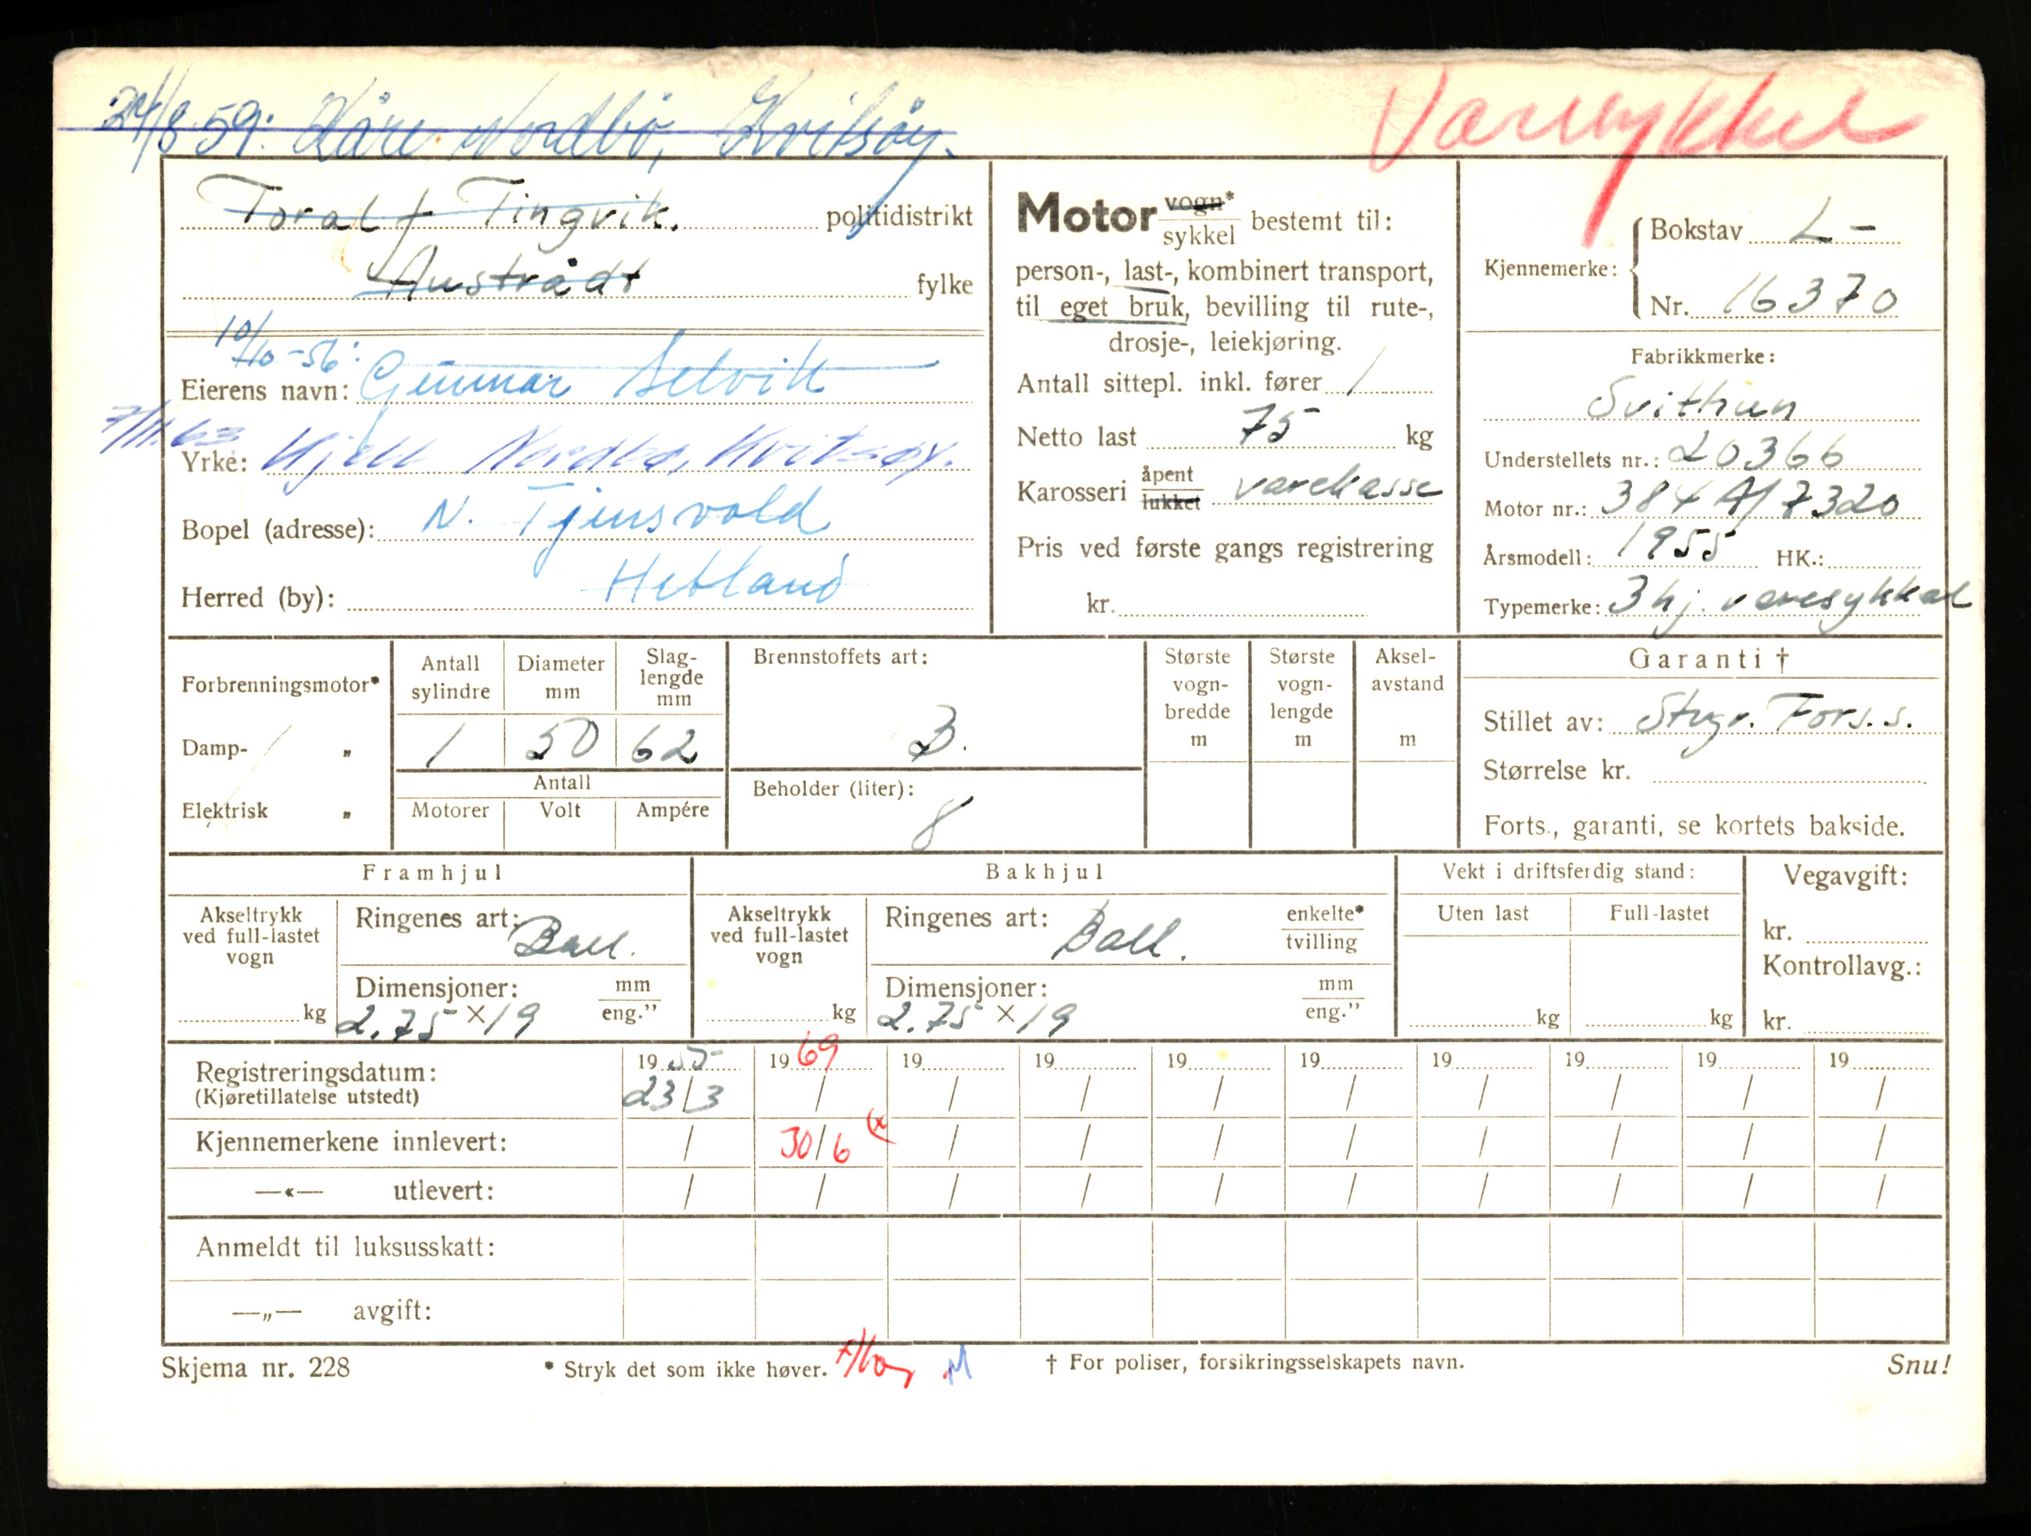 24/8 59: Kåre Nordbø, Kvitsøy.
Varesykkel
Toralf Tingvik. politidistrikt
Austrådt fylke
10/10-56:
Eierens navn: Gunnar Selvik
7/11.63
Yrke: Kjell Nordbø, Kvitsøy.
Bopel (adresse): N. Tjensvold
Herred (by): Hetland
Motor vogn* sykkel bestemt til:
person-, last-, kombinert transport,
til eget bruk, bevilling til rute-,
drosje-, leiekjøring.
Antall sittepl. inkl. fører 1
Netto last 75 kg
Karosseri åpent lukket varekasse
Pris ved første gangs registrering
kr.
Kjennemerke: Bokstav L-
Nr. 16370
Fabrikkmerke:
Svithun
Understellets nr.: 20366
Motor nr.: 384 A/7320
Årsmodell: 1955 HK.:
Typemerke: 3 hj. varesykkel
Forbrenningsmotor*
Damp- „
Elektrisk „
Antall sylindre Diameter mm Slag-lengde mm
1 50 62
Antall
Motorer Volt Ampére
Brennstoffets art:
B.
Beholder (liter):
8
Største vogn-bredde m
Største vogn-lengde m
Aksel-avstand m
Garanti †
Stillet av: Styr. Fors.s.
Størrelse kr.
Forts., garanti, se kortets bakside.
Framhjul
Akseltrykk ved full-lastet vogn
kg
Ringenes art: Ball.
Dimensjoner: mm eng."
2.75 × 19
Bakhjul
Akseltrykk ved full-lastet vogn
kg
Ringenes art: Ball. enkelte* tvilling
Dimensjoner: mm eng."
2.75 × 19
Vekt i driftsferdig stand:
Uten last Full-lastet
kg kg
Vegavgift:
kr.
Kontrollavg.:
kr.
Registreringsdatum: 19 55 19 69 19 19 19 19 19 19 19 19
(Kjøretillatelse utstedt) 23/3 / / / / / / / / /
Kjennemerkene innlevert: / 30/6 (x / / / / / / / /
—«— utlevert: / / / / / / / / / /
Anmeldt til luksusskatt:
—„— avgift:
Skjema nr. 228 * Stryk det som ikke høver. M † For poliser, forsikringsselskapets navn. Snu!